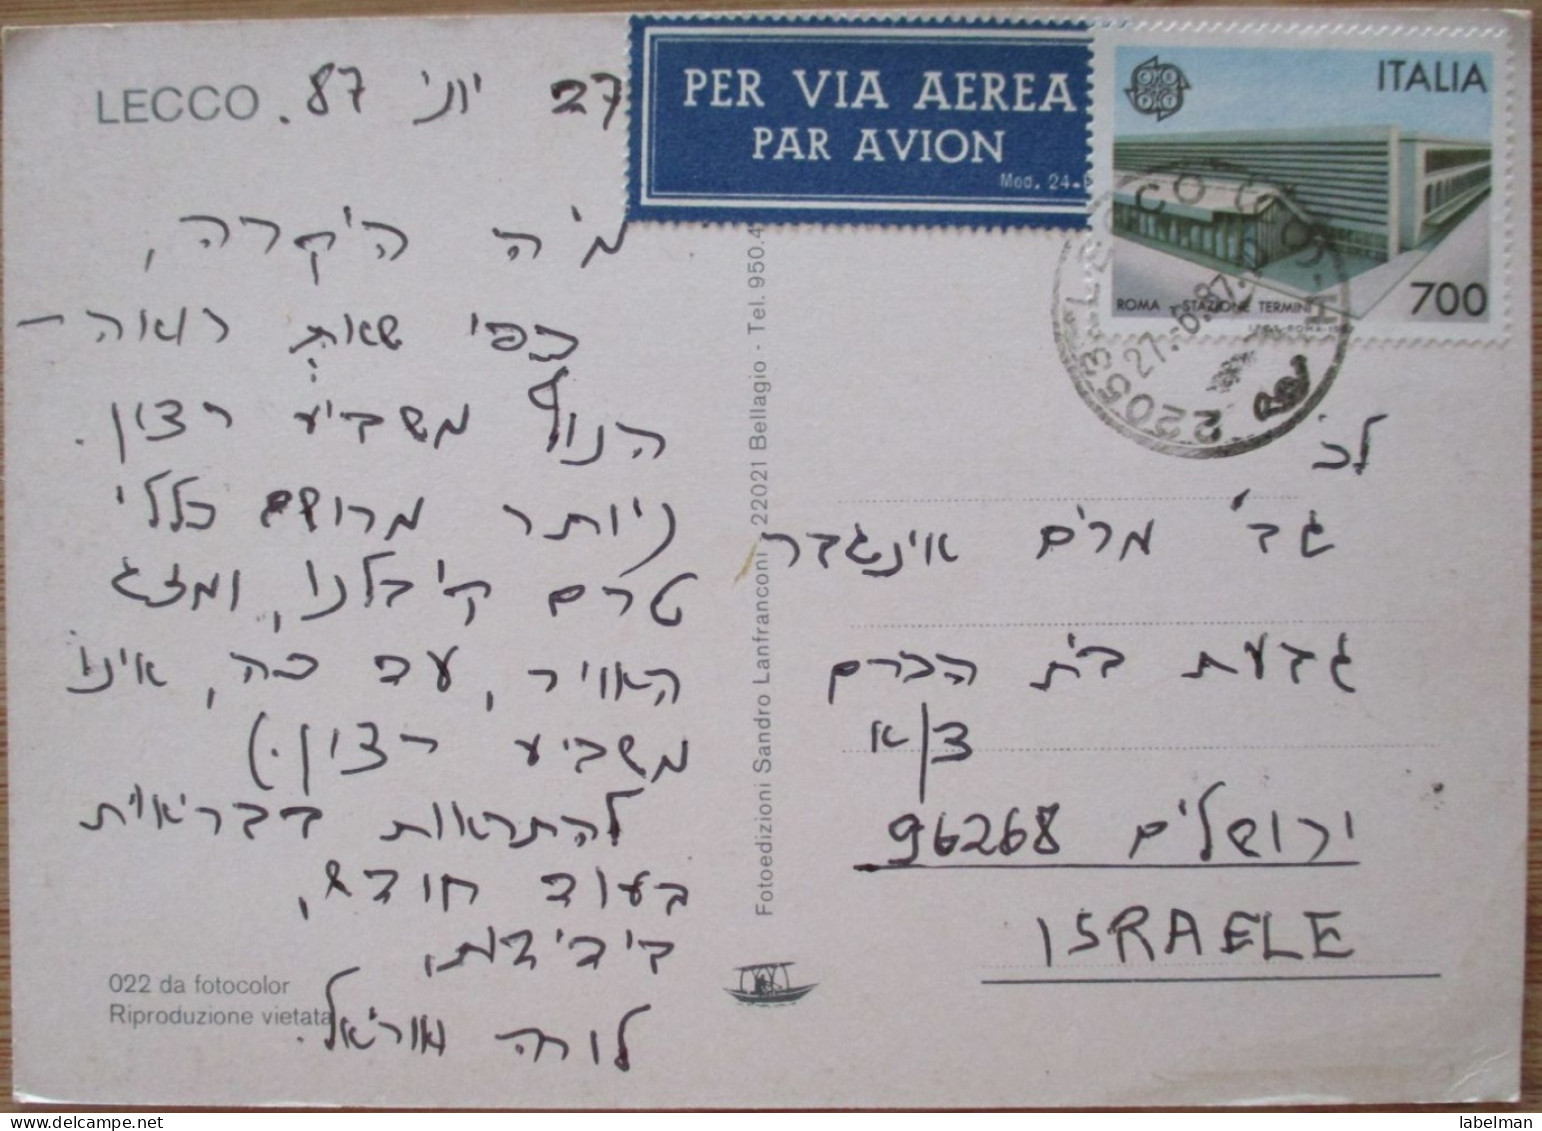 LECCO
27 יוני 87.
מ'ה היקרה,
כפי שאת רואה –
הנוף משביע רצון.
(יותר מרושם כללי
טרם קיבלנו, ומזג
האויר, עד כה, אינו
משביע רצון.)
להתראות בבריאות
בעוד חודש,
בידידות,
לורה
022 da fotocolor
Riproduzione vietata
Fotoedizioni Sandro Lanfranconi - 22021 Bellagio - Tel. 950.4
PER VIA AEREA
PAR AVION
Mod. 24-
ITALIA
ROMA - STAZIONE TERMINI
700
22053 LECCO
27.-6.87
לכ'
גב' מרים אינגבר
גבעת בית הכרם
ירושלים 96268
ISRAELE
labelman